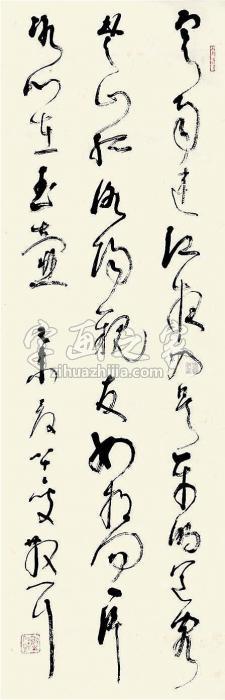 寒雨連江夜入吳平明送客
楚山孤洛陽親友如相問一片
冰心在玉壺
字画之家
zihuazhijia.com